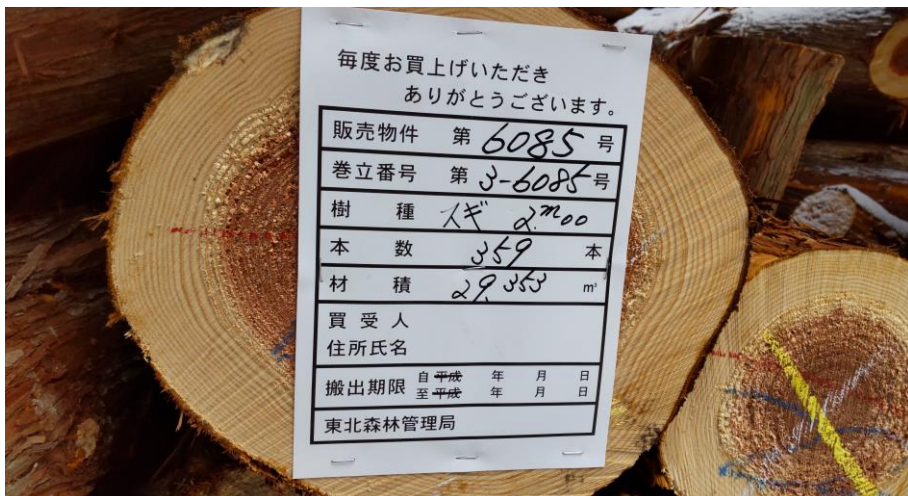 毎度お買上げいただき
ありがとうございます。
販売物件 第 6085 号
巻立番号 第 3-6085 号
樹種 スギ 2.m00
本数 359 本
材積 29.353 m³
買受人
住所氏名
搬出期限 自 平成 年 月 日
至 平成 年 月 日
東北森林管理局